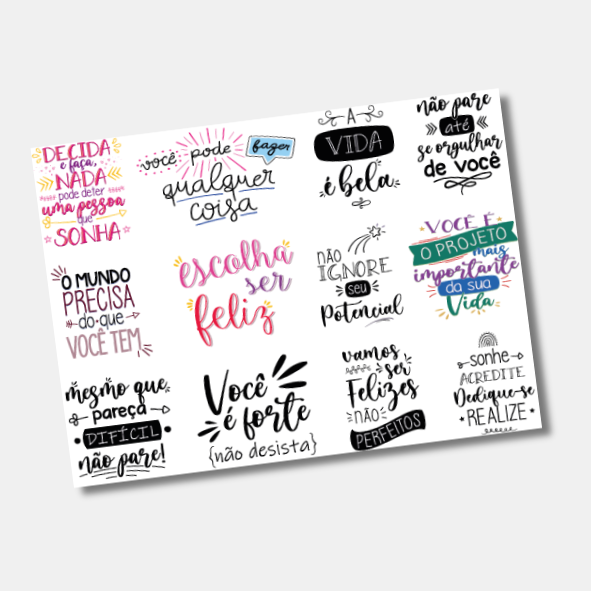 DECIDA
e faça,
NADA
pode deter
uma pessoa
que
SONHA
você pode fazer
qualquer
coisa
A
VIDA
é bela
não pare
até
se orgulhar
de você
O MUNDO
PRECISA
do que
VOCÊ TEM
escolha
ser
feliz
NÃO
IGNORE
seu
Potencial
VOCÊ É
O PROJETO
mais
importante
da sua
Vida
mesmo que
pareça
DIFÍCIL
não pare!
Você
é forte
{não desista}
vamos
ser
Felizes
NÃO
PERFEITOS
sonhe
ACREDITE
Dedique-se
REALIZE